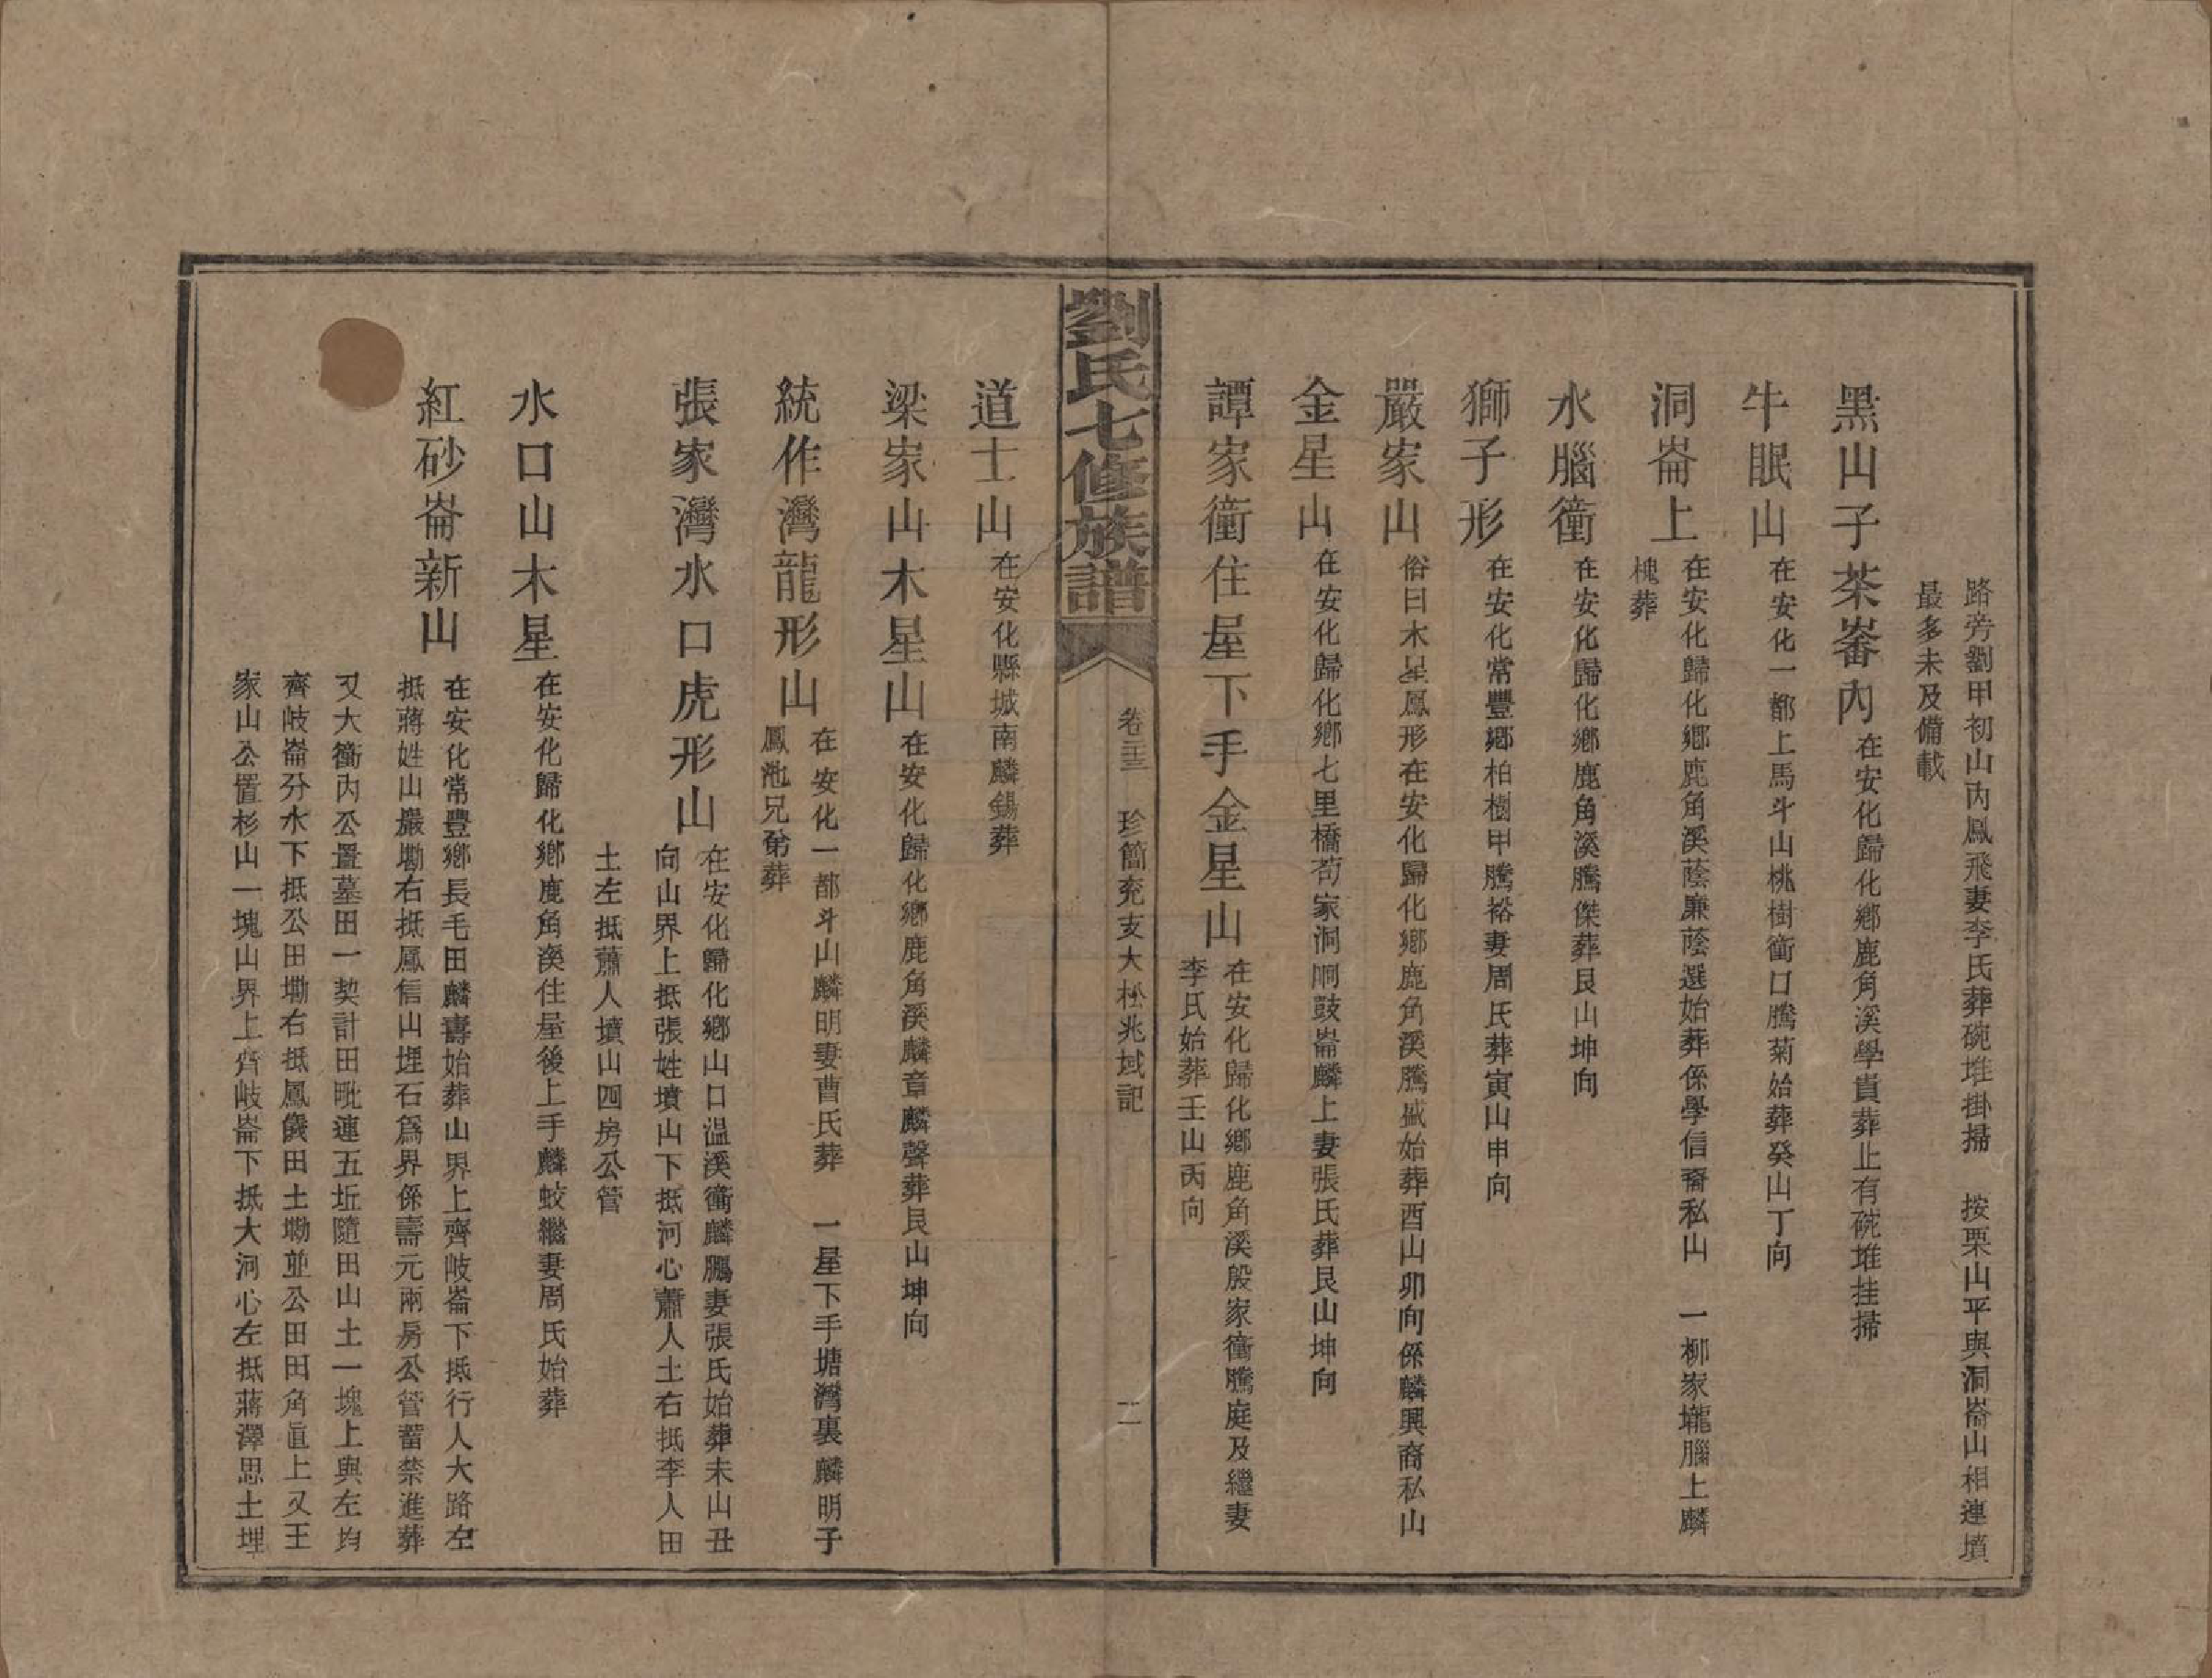 路旁劉甲初山內鳳飛妻李氏葬碗堆掛掃　按栗山平與洞崙山相連墳
最多未及備載
黑山子茶崙內在安化歸化鄉鹿角溪學貴葬止有碗堆挂掃
牛眠山在安化一都上馬斗山桃樹衝口騰菊始葬癸山丁向
洞崙上在安化歸化鄉鹿角溪蔭廉蔭選始葬係學信裔私山　一柳家壠腦上麟
槐葬
水腦衝在安化歸化鄉鹿角溪騰傑葬艮山坤向
獅子形在安化常豐鄉柏樹甲騰裕妻周氏葬寅山申向
嚴家山俗曰木星鳳形在安化歸化鄉鹿角溪騰盛始葬酉山卯向係麟興裔私山
金星山在安化歸化鄉七里橋苟家洞峒鼓崙麟上妻張氏葬艮山坤向
譚家衝住屋下手金星山在安化歸化鄉鹿角溪殷家衝騰庭及繼妻
李氏始葬壬山丙向
劉氏七修族譜
卷三十三　珍簡兖支大松兆域記
二
道士山在安化縣城南麟錫葬
梁家山木星山在安化歸化鄉鹿角溪麟章麟聲葬艮山坤向
統作灣龍形山在安化一都斗山麟明妻曹氏葬　一星下手塘灣裏麟明子
鳳池兄弟葬
張家灣水口虎形山在安化歸化鄉山口溫溪衝麟鵬妻張氏始葬未山丑
向山界上抵張姓墳山下抵河心蕭人土右抵李人田
土左抵蕭人墳山四房公管
水口山木星在安化歸化鄉鹿角溪住屋後上手麟蛟繼妻周氏始葬
紅砂崙新山在安化常豐鄉長毛田麟壽始葬山界上齊岐崙下抵行人大路左
抵蔣姓山巖墈右抵鳳信山埋石為界係壽元兩房公管蓄禁進葬
又大衝內公置墓田一契計田毗連五坵隨田山土一塊上與左均
齊岐崙分水下抵公田墈右抵鳳儀田土墈並公田田角直上又王
家山公置杉山一塊山界上齊岐崙下抵大河心左抵蔣澤思土埋